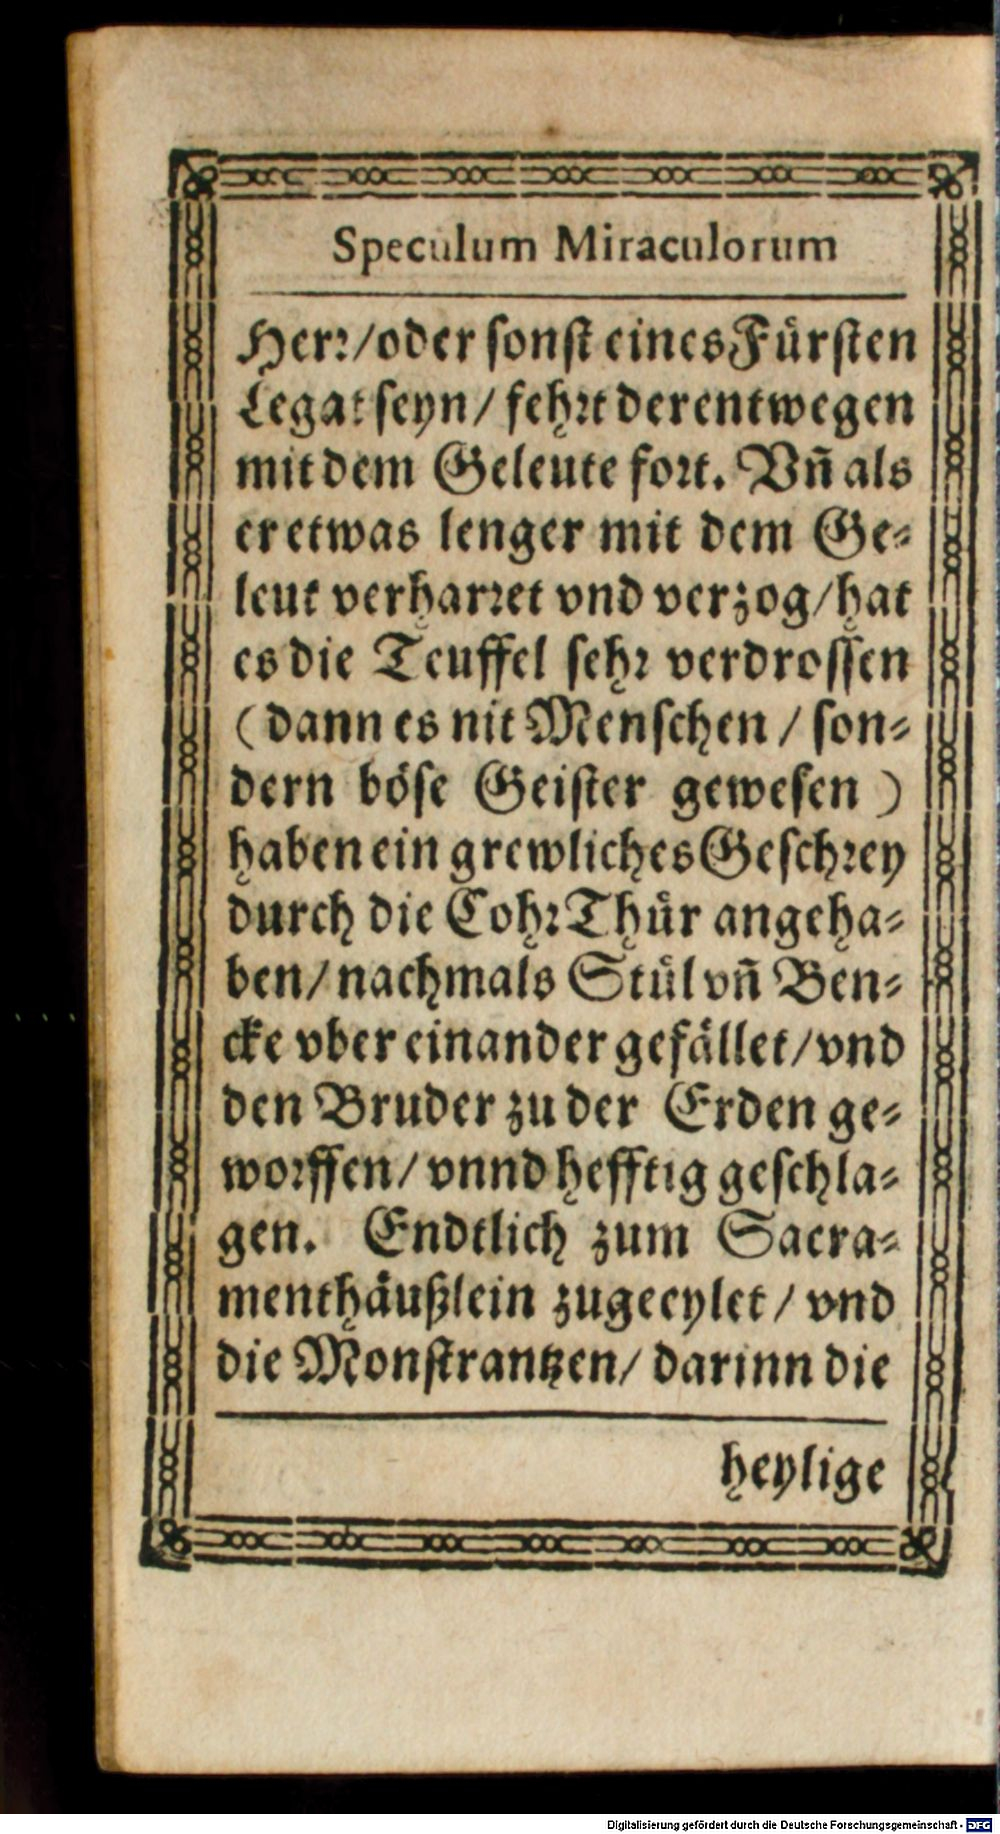 Speculum Miraculorum
Herr/oder sonst eines Fürsten
Legat seyn/ fehrt derentwegen
mit dem Geleute fort. Vñ als
er etwas lenger mit dem Ge⸗
leut verharret vnd verzog/hat
es die Teuffel sehr verdrossen
(dann es nit Menschen / son⸗
dern böse Geister gewesen )
haben ein grewliches Geschrey
durch die Cohr Thür angeha⸗
ben/nachmals Stül vñ Ben⸗
cke vber einander gefället/vnd
den Bruder zu der Erden ge⸗
worffen/ vnnd hefftig geschla⸗
gen. Endtlich zum Sacra⸗
menthäußlein zugeeylet / vnd
die Monstrantzen/ darinn die
heylige
Digitalisierung gefördert durch die Deutsche Forschungsgemeinschaft - DFG